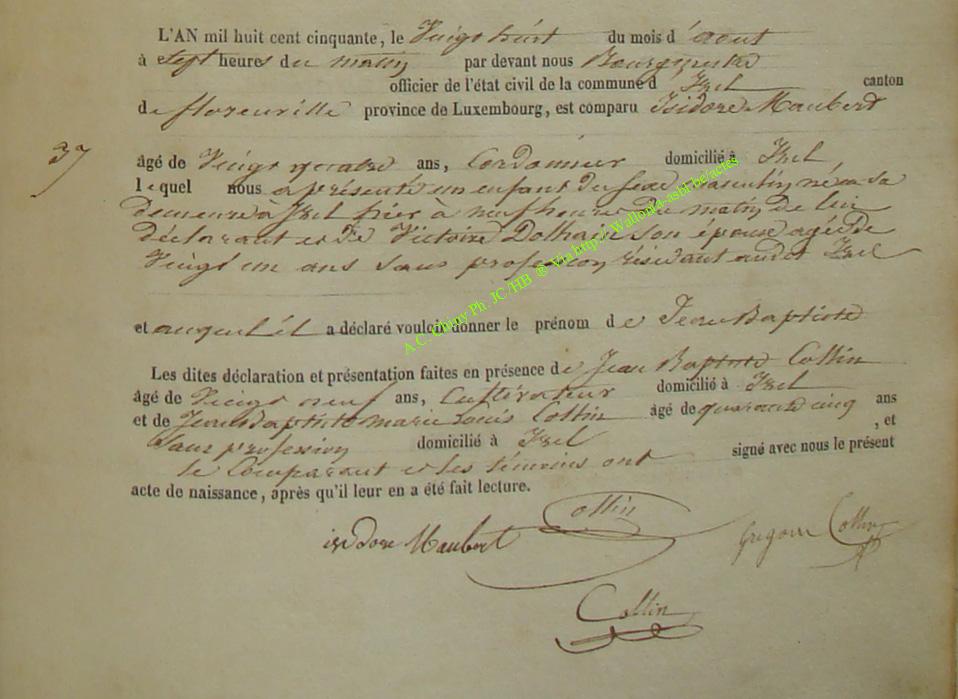 L'AN mil huit cent cinquante, le Vingt huit du mois d'aout
à Sept heures du matin par devant nous Bourgmestre
officier de l'état civil de la commune d Izel canton
de florenville province de Luxembourg, est comparu Isidore Maubert
37
âgé de Vingt quatre ans, Cordonnier domicilié à Izel
lequel nous a présenté un enfant du sexe masculin, né en sa
demeure à Izel hier à neuf heures du matin de lui
déclarant et de Victoire Dolhain son épouse agée de
Vingt un ans sans profession résidant audit Izel
et auquel il a déclaré vouloir donner le prénom de Jean Baptiste
Les dites déclaration et présentation faites en présence de Jean Baptiste Collin
âgé de Vingt neuf ans, Cultivateur domicilié à Izel
et de Jean Baptiste marie Louis Collin âgé de quarante cinq ans
Sans profession domicilié à Izel , et
le Comparant et les témoins ont signé avec nous le présent
acte de naissance, après qu'il leur en a été fait lecture.
Collin
isidore Maubert
Gregoire Collin
Collin
A.C. Chiny Ph. JC/HB @ Via http://Wallonia-asbl.be/actes